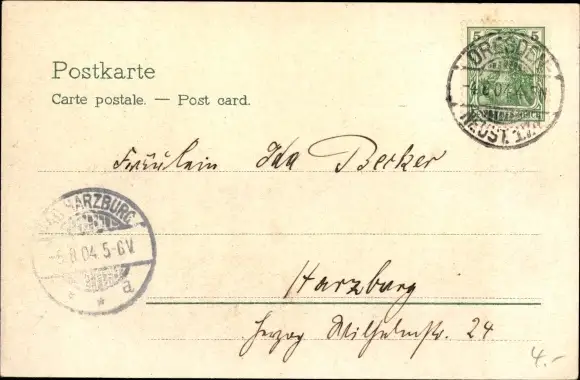 Postkarte
Carte postale. — Post card.
5 5
DRESDEN-
NEUST. 1.
Fräulein Ida Becker
BAD HARZBURG
-5.8.04. 5-6V.
a
Harzburg
Herzog Wilhelmstr. 24
4.-